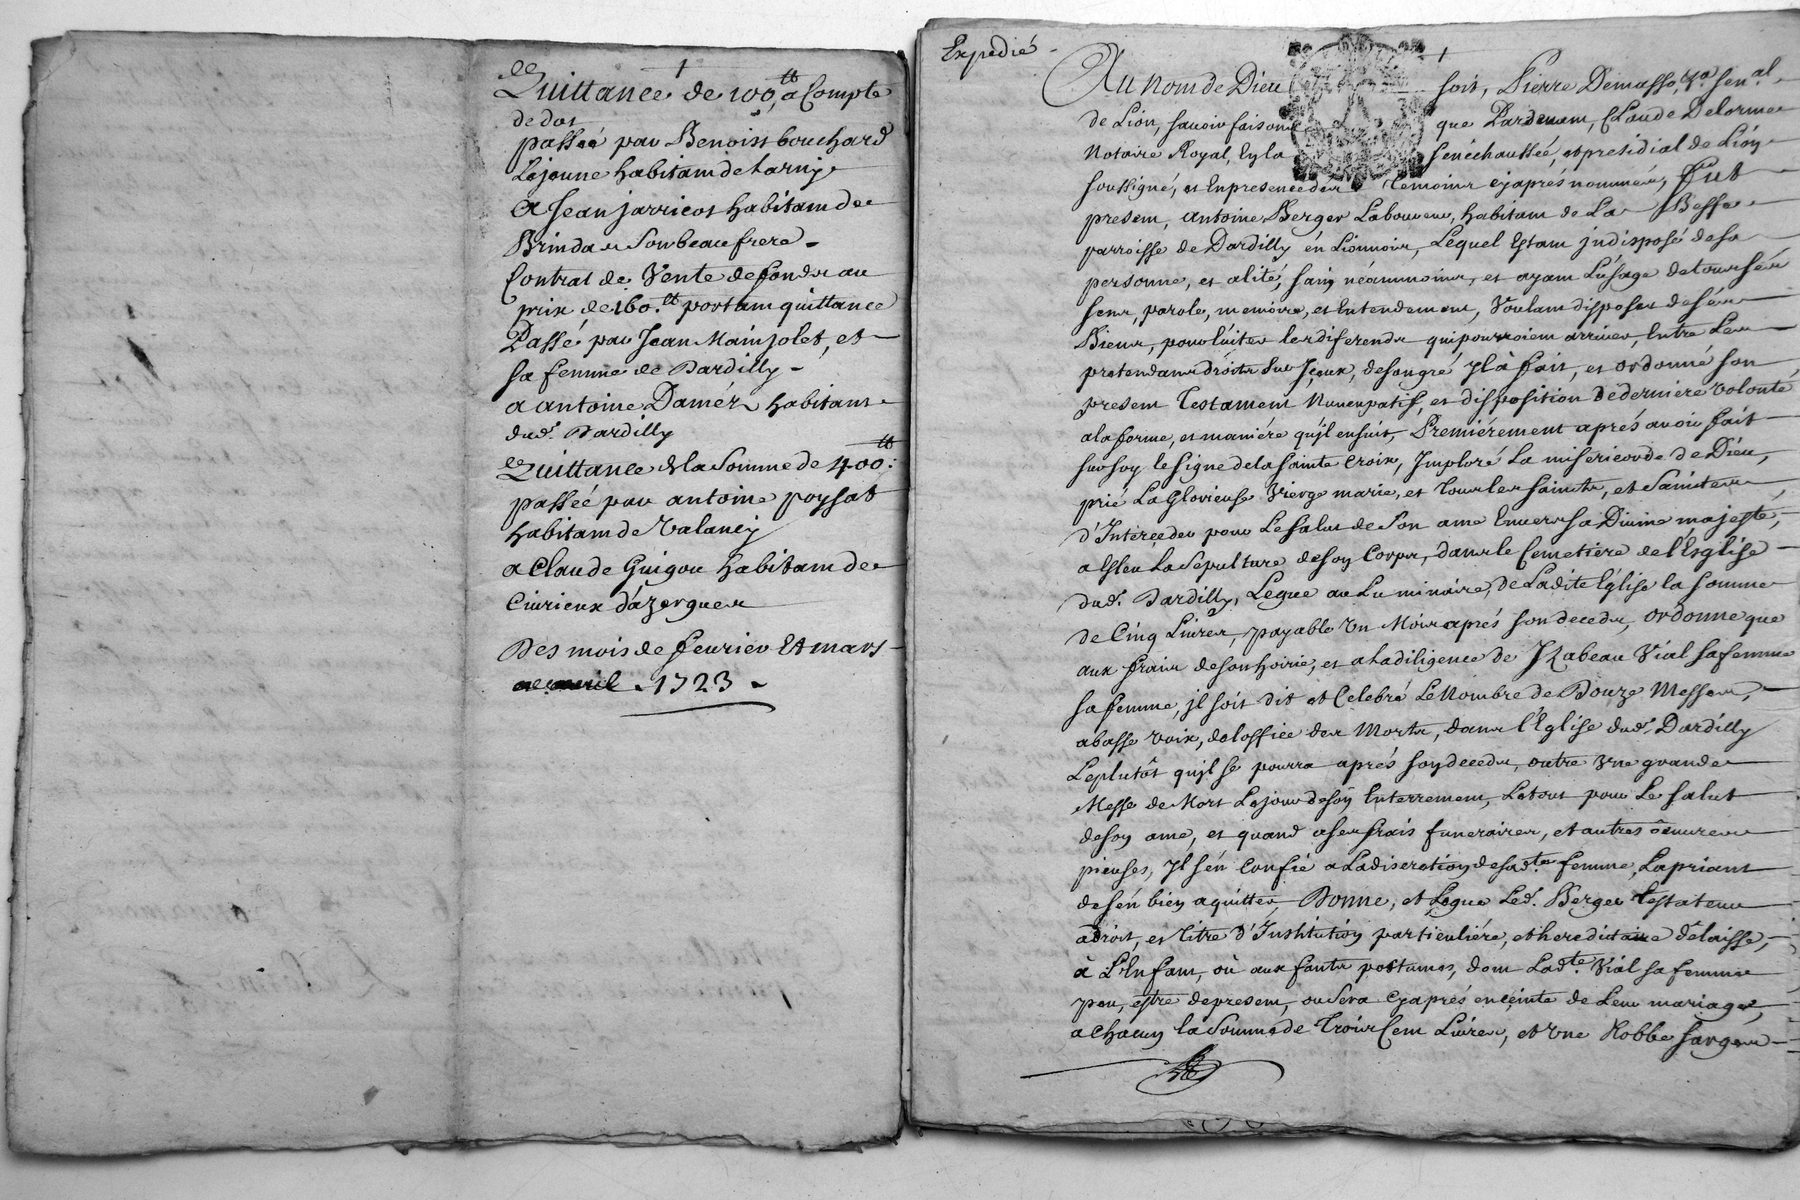 Quittance de 100.tt a Compte
de dot
passée par Benoist bouchard
Lejeune habitant de tarnj
A Jean jarricot habitant de
Brindas Son beaufrere
Contrat de Vente defonds au
prix de 160.tt portant quittance
Passé par Jean Mainjolet, et
sa femme de Dardilly
a antoine Daméz habitant
dud. Dardilly
Quittance de la Somme de 400.tt
passée par antoine poysat
habitant de Valancy
a Claude Guigou habitant de
Civrieux d'azergues
Des mois de feurier et mars
1723
Expedié
Au nom de Dieu soit, Pierre Demasso, Sen.al
de Lion, sauoir faisons que Pardeuant, Claude Delorme
Notaire Royal, En la senéchaussée, et presidial de Lion
soussigné, et En presence des temoins cyaprés nommés, fut
present, Antoine Berger Laboureur, habitant de La Besse
parroisse de Dardilly en Lionnois, Lequel Estant jndisposé de sa
personne, et alité, sain néanmoins, et ayant L'usage de tous ses
sens, parole, memoire, et Entendement, Voulant disposer de ses
Biens, pour Euiter les diferends qui pourroient arriuer, Entre Les
pretendans droits sur Jceux, de son gré Jl à fait, et ordonné son
present Testament Nuncupatif, et disposition de derniere volonté
a la forme, et maniére qu'jl ensuit, Premiérement aprés auoir fait
sur soy le signe de la sainte Croix, Jmploré La misericorde de Dieu,
prié La Glorieuse Vierge marie, et tous les saints, et saintes,
d'Interceder pour Le salut de Son ame Enuers sa Diuine majesté,
a Esleu La Sepulture de son Corps, dans le Cemetiére de l'Esglise
dud. Dardilly, Legue au Luminaire, de Ladite Eglise la somme
de Cinq Liures, payable Un Mois aprés son deceds, ordonne que
aux frais de son hoirie, et a la diligence de Jzabeau Vial sa femme
sa femme, jl soit dit et Celebré Le Nombre de Douze Messes,
a basse voix, de l'office des Morts, dans l'Eglise dud. Dardilly
Le plutôt qu'jl se pourra aprés son deceds, outre Vne grande
Messe de Mort Le jour de son Enterrement, Le tout pour Le salut
de son ame, et quand a ses frais funeraires, et autres oeuures
pieuses, Jl s'én Confie a La discretion de sad.te femme, La priant
de s'én bien aquitter, Donne, et Legue Led. Berger testateur
a droit, et titre d'Institution particuliére, et hereditaire délaisse,
à L'Enfant, où aux fants postumes, dont Lad.te Vial sa femme
peu, estre de present, ou Sera cyaprés enceinte de Leur mariage,
a Chacun la somme de Trois Cent Liures, et Vne Robbe sarge